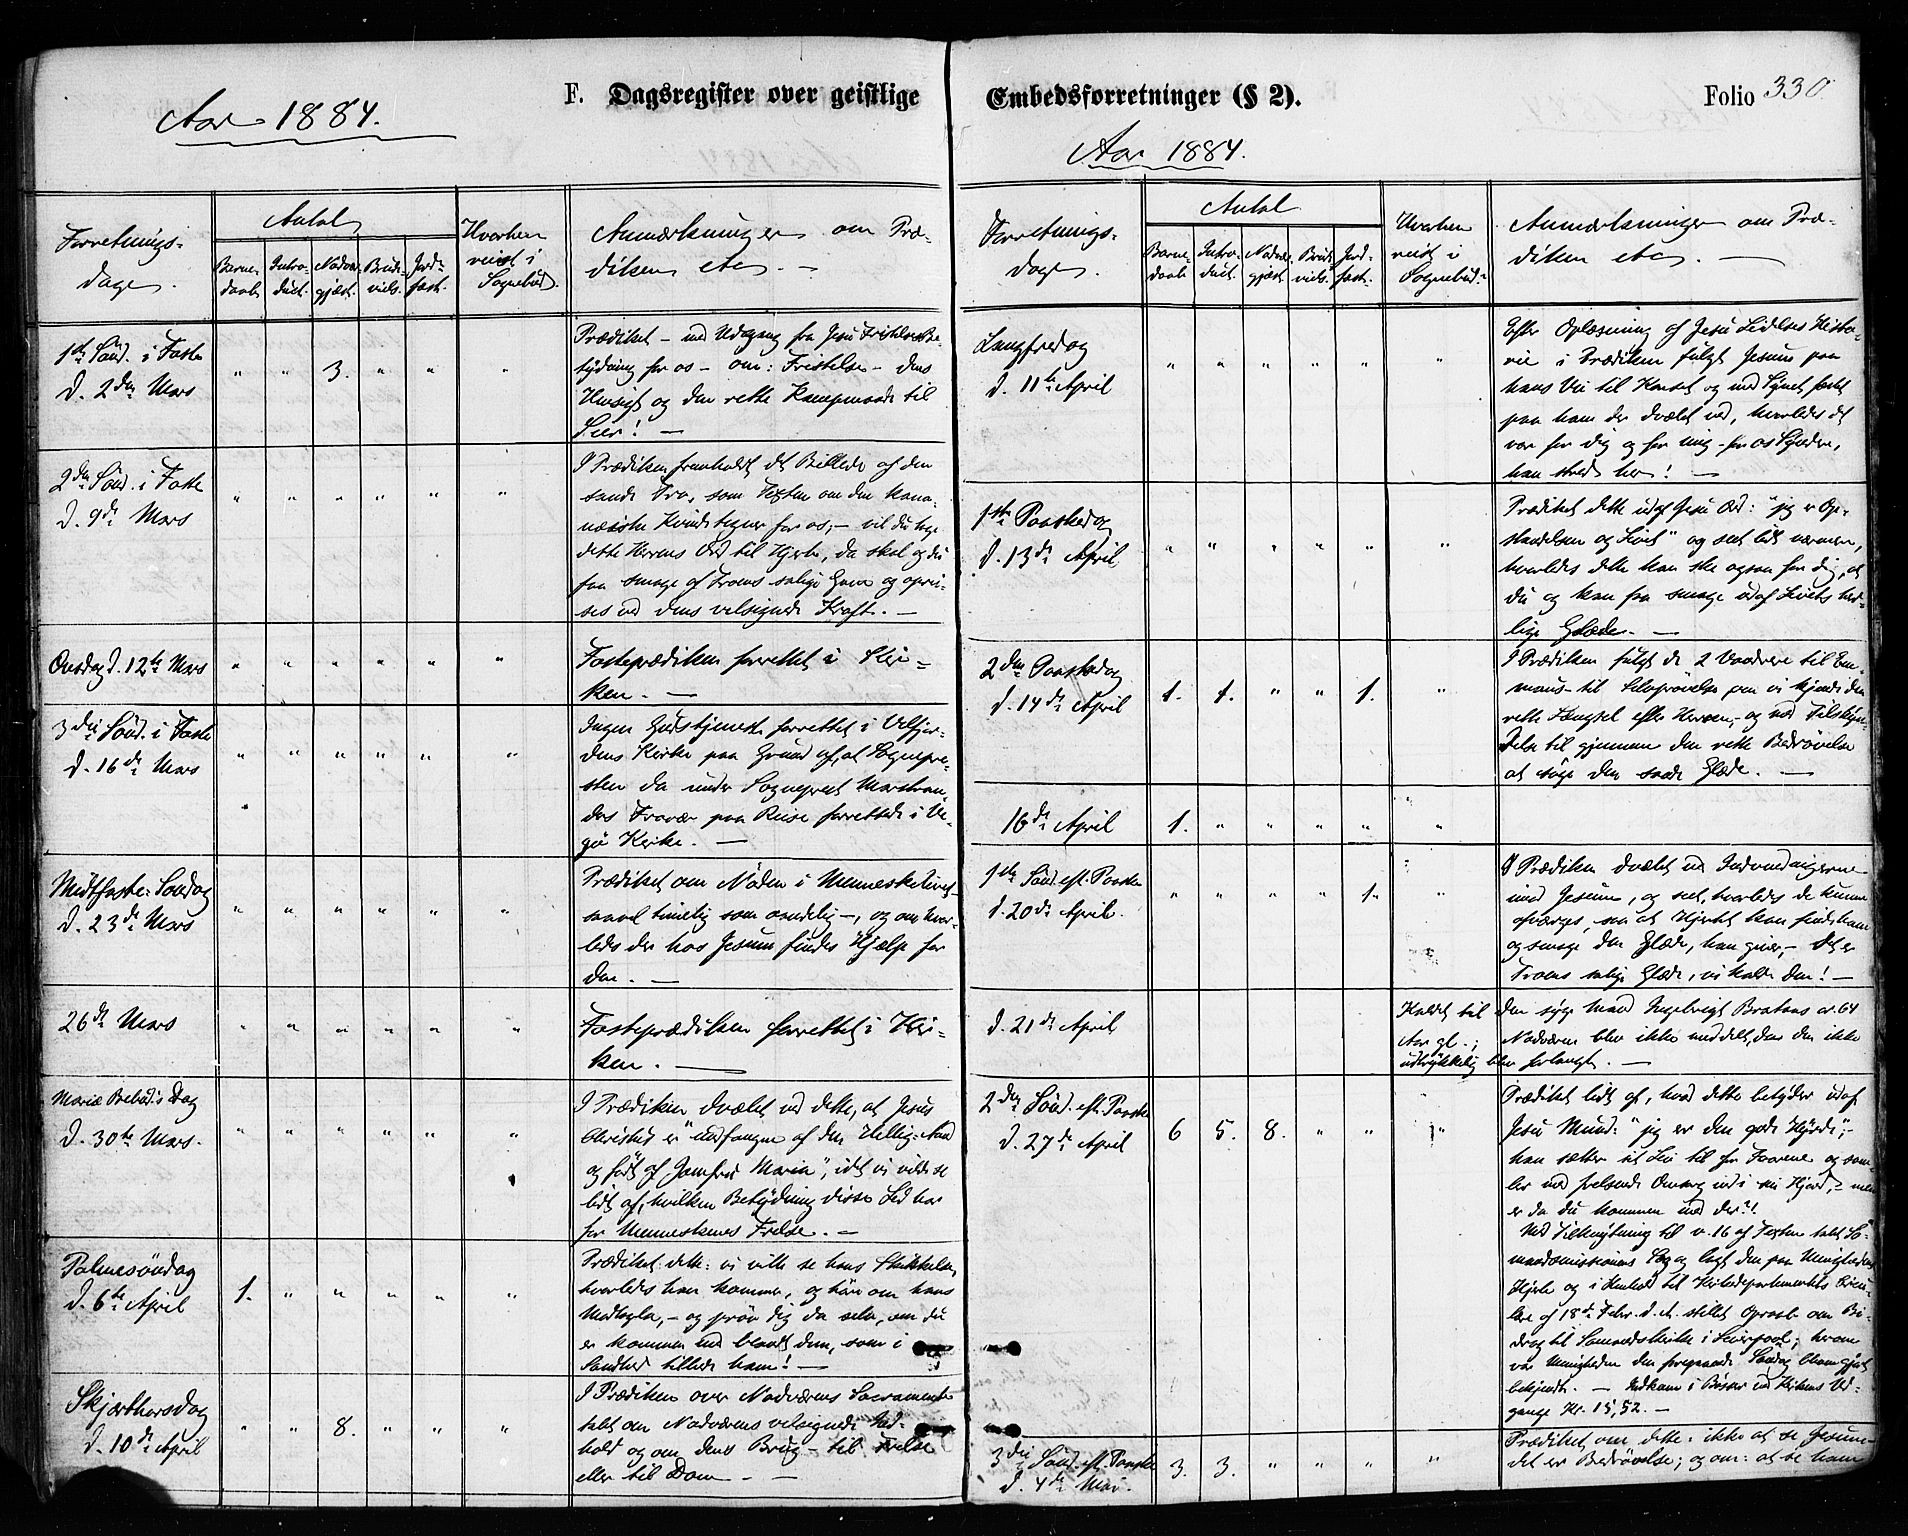 Aar 1884.
F. Dagsregister over geistlige
Forretnings-
dage.
Antal
Barne-
daab
Intro-
duct.
Nadver-
gjæst.
Brude-
viels.
Jord-
fæst.
Hvorhen
reist i
Sognebud.
Anmærkninger om Præ-
diken etc. —
1ste Sönd. i Faste
d. 2den Mars
" " 3. " " "
Prædiket – med Udgang fra Jesu Fristelses Be-
tydning for os – om: Fristelse – dens
Hensigt og den rette Kampmaade til
Seier! —
2den Sönd. i Faste
d. 9de Mars
" " " " " "
I Prædiken fremholdt det Billede af den
sande Tro, som Texten om den kana-
næiske Kvinde tegner for os; – vil du tage
dette Herrens Ord til Hjerte, da skal og du
faa smage af Troens salige Gave og oprei-
ses ved dens velsignede Kraft. —
Onsdag d. 12te Mars
" " " " " "
Fasteprædiken forrettet i Kir-
ken. —
3die Sönd. i Faste
d. 16de Mars
" " " " " "
Ingen Gudstjeneste forrettet i Velfjor-
dens Kirke paa Grund af, at Sognepre-
sten da under Sogneprest Marstran-
ders Fravær paa Reise forrettede i Ve-
gö Kirke. —
Midtfaste-Søndag
d. 23de Mars
" " " " " "
Prædiket om Nöden i Menneskelivet –
saavel timelig som aandelig –, og om hvor-
ledes der hos Jesum findes Hjælp for
den. —
26de Mars
" " " " " "
Fasteprædiken forrettet i Kir-
ken. —
Mariæ Bebud.s Dag
d. 30te Mars.
" " " " " "
I Prædiken dvælet ved dette, at Jesus
Christus er "undfangen af den Hellig-Aand
og födt af Jomfru Maria", idet vi vilde se
lidt af, hvilken Betydning disse Led har
for Menneskenes Frelse. —
Palmesöndag
d. 6te April
1. " " " " "
Prædiket dette: vi ville se hans Skikkelse,
hvorledes han kommer, og höre om hans
Modtagelse, – og pröv dig da selv, om du
er kommen ind blandt dem, som i
Sandhed tilbede ham! —
Skjærthorsdag
d. 10de April
" " 8. " " "
I Prædiken over Nadverens Sacramente
talt om Nadverens velsignede Ind-
hold og om dens Brug – til Frelse
eller til Dom. —
Embedsforretninger (§ 2).
Folio 330.
Aar 1884.
Forretnings-
dage.
Antal
Barne-
daab
Intro-
duct.
Nadver-
gjæst.
Brude-
viels.
Jord-
fæst.
Hvorhen
reist i
Sognebud.
Anmærkninger om Præ-
diken etc. —
Langfredag
d. 11te April
" " " " " "
Efter Oplæsning af Jesu Lidelses Histo-
rie i Prædiken fulgt Jesum paa
hans Vei til Korset og med Synet fæstet
paa ham der dvælet ved, hvorledes det
var for dig og for mig – for os Syndere,
han stred her! —
1ste Paaskedag
d. 13de April
" " " " " "
Prædiket dette udaf Jesu Ord: "jeg er Op-
standelsen og Livet" og seet lidt nærmere,
hvorledes dette kan ske ogsaa for dig, at
du og kan faa smage udaf Livets her-
lige Glæde. —
2den Paaskedag
d. 14de April
1. 1. " " 1. "
I Prædiken fulgt de 2 Vandrere til Em-
maus – til Selvprövelse om vi kjende den
rette Længsel efter Herren, – og ved Tilskyn-
delse til gjennem den rette Bedrövelse
at söge den sande Glæde. —
16de April
1. " " " " "
1ste Sönd. eft. Paaske
d. 20de April.
" " " " 1. "
I Prædiken dvælet ved Indvendingerne
mod Jesum, og seet, hvorledes de kunne
afværges, saa at Hjertet kan finde ham
og smage den Glæde, han giver, – det er
Troens salige Glæde, vi kalde den! —
d. 21de April
Kaldet til den syge Mand Ingebrigt Brataas ca. 64
Aar gl.; Nadveren blev ikke meddelt, da den ikke
udtrykkelig blev forlangt. —
2den Sönd. eft. Paaske
d. 27de April
6 5. 8. " " "
Prædiket lidt af, hvad dette betyder udaf
Jesu Mund: "jeg er den gode Hyrde"; –
han sætter sit Liv til for Faarene og sam-
ler ved frelsende Omsorg ind i sin Hjord, – men
er da du kommen ind der?!
Med Tilknytning til v. 16 af Texten talt Sö-
mandsmissionens Sag og lagt den paa Menighedens
Hjerte og i Henhold til Kirkedepartementets Circu-
lære af 18de Febr. d. A. stillet Opraab om Bi-
drag til Sömandskirke i Liverpool; hvorom
var Menigheden den foregaaende Søndag bleven gjort
bekjendt. — Indkom i Bösser ved Kirkens Ud-
gange Kr. 15,52. —
3die Sönd. eft. Paaske
d. 4de Mai.
3. 3. " " " "
Prædiket om dette: ikke at se Jesum –
det er Bedrövelse; og om: at se ham